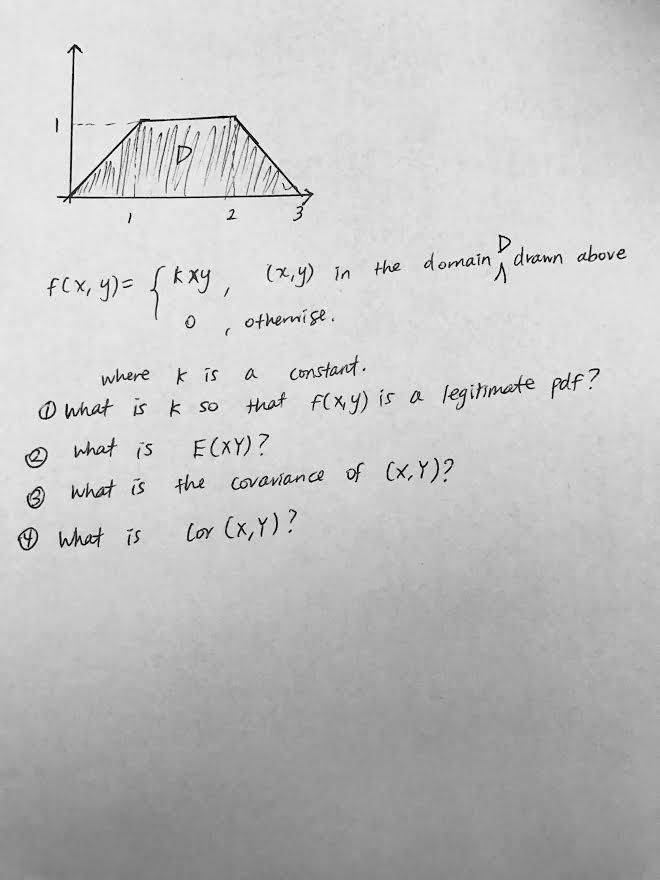 1
D
1 2 3
f(x, y) = { kxy, (x,y) in the domain D drawn above
0, otherwise.
where k is a constant.
① What is k so that f(x,y) is a legitimate pdf?
② What is E(XY)?
③ What is the covariance of (X,Y)?
④ What is Cor (X,Y)?